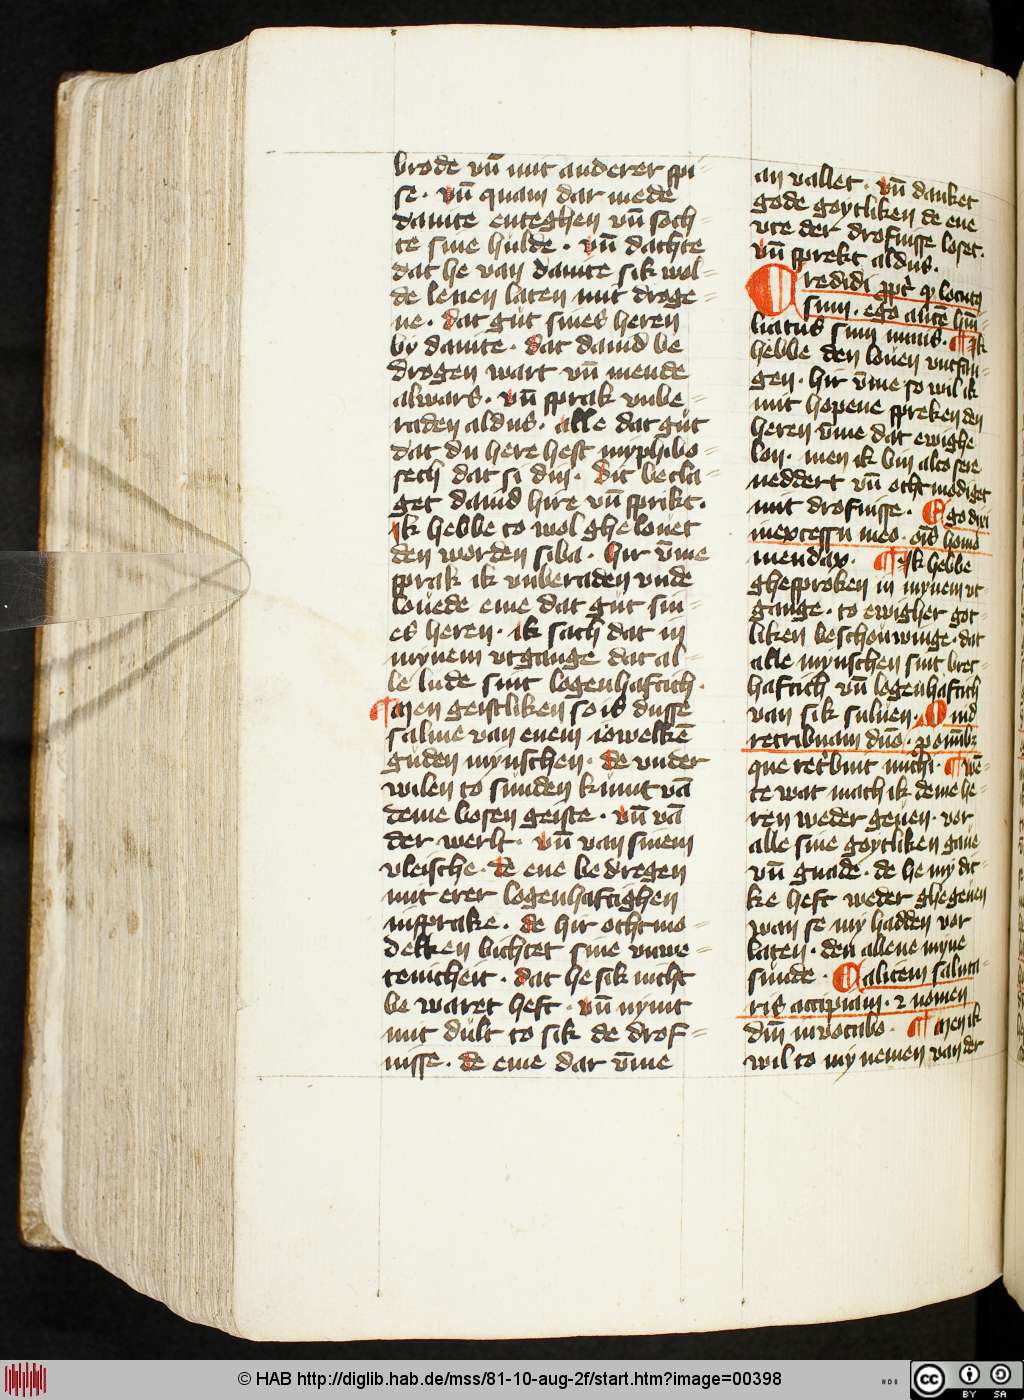 brode vn̄ mit anderer spi-
se. vn̄ quam dar mede
dauite enteghen vn̄ soch-
te sine hulde. vn̄ dachte
dat he van dauite sik wol-
de lenen laten mit droge-
ne. dat gůt sines heren
by dauite. dat dauid be
drogen wart vn̄ mende
alwars. vn̄ sprak vnbe-
raden aldus. alle dat gůt
dat du here hest myphibo-
seth dat si din. dit becla-
get dauid hire vn̄ sprikt.
ik hebbe to wol ghelouet
den worden siba. hir v̄me
sprak ik vnberaden vnde
louede eme dat gůt sin-
es heren. ik sach dat in
mynem vtgange dat al-
le lude sint logenhaftich.
¶ Men geistliken so is dusse
salme van enem iowelkē
guden mynschen. de vnder
wilen to sunden kumt vā
deme bosen geiste. vn̄ vā
der werlt. vn̄ van sinem
vleische. de ene bedregen
mit erer logenhaftighen
insprake. de hir othmo-
delken bichtet sine vnwe-
tenicheit. dat he sik nicht
be waret heft. vn̄ nymt
mit dult to sik de drof-
nisse. de eme dar v̄me
an vallet. vn̄ danket
gode goytliken de ene
vte der drofnisse loset.
vn̄ sprekt aldus.
Credidi ꝓpt̕ qͥ locutꝰ
sum. ego autē hūi-
liatus sum nimis. ¶ Ik
hebbe den louen vntfan-
gen. hir v̄me so wil ik
mit hopene spreken den
heren v̄me dat ewighe
lon. men ik bin alto sere
neddert vn̄ othmodiget
mit drofnisse. Ego dixi
in excessu meo. oīs homo
mendax. ¶ Ik hebbe
ghesproken in mynem vt
gange. to ewigher got-
liken beschouwinge. dat
alle mynschen sint bret-
haftich vn̄ logenhaftich
van sik suluen. Quid
retribuam dn̄o. ꝓ omībꝫ
que ret̕buit michi. ¶ wē-
te wat mach ik deme he-
ren weder geuen. vor
alle sine goytliken gaue
vn̄ gnade. de he my dic-
ke heft weder ghegeuen
wan se my hadden vor
laten. den allene myne
sunde. Calicem saluta-
ris accipiam. ⁊ nomen
dn̄i inuocabo. ¶ Men ik
wil to my nemen van der
© HAB http://diglib.hab.de/mss/81-10-aug-2f/start.htm?image=00398
cc BY SA